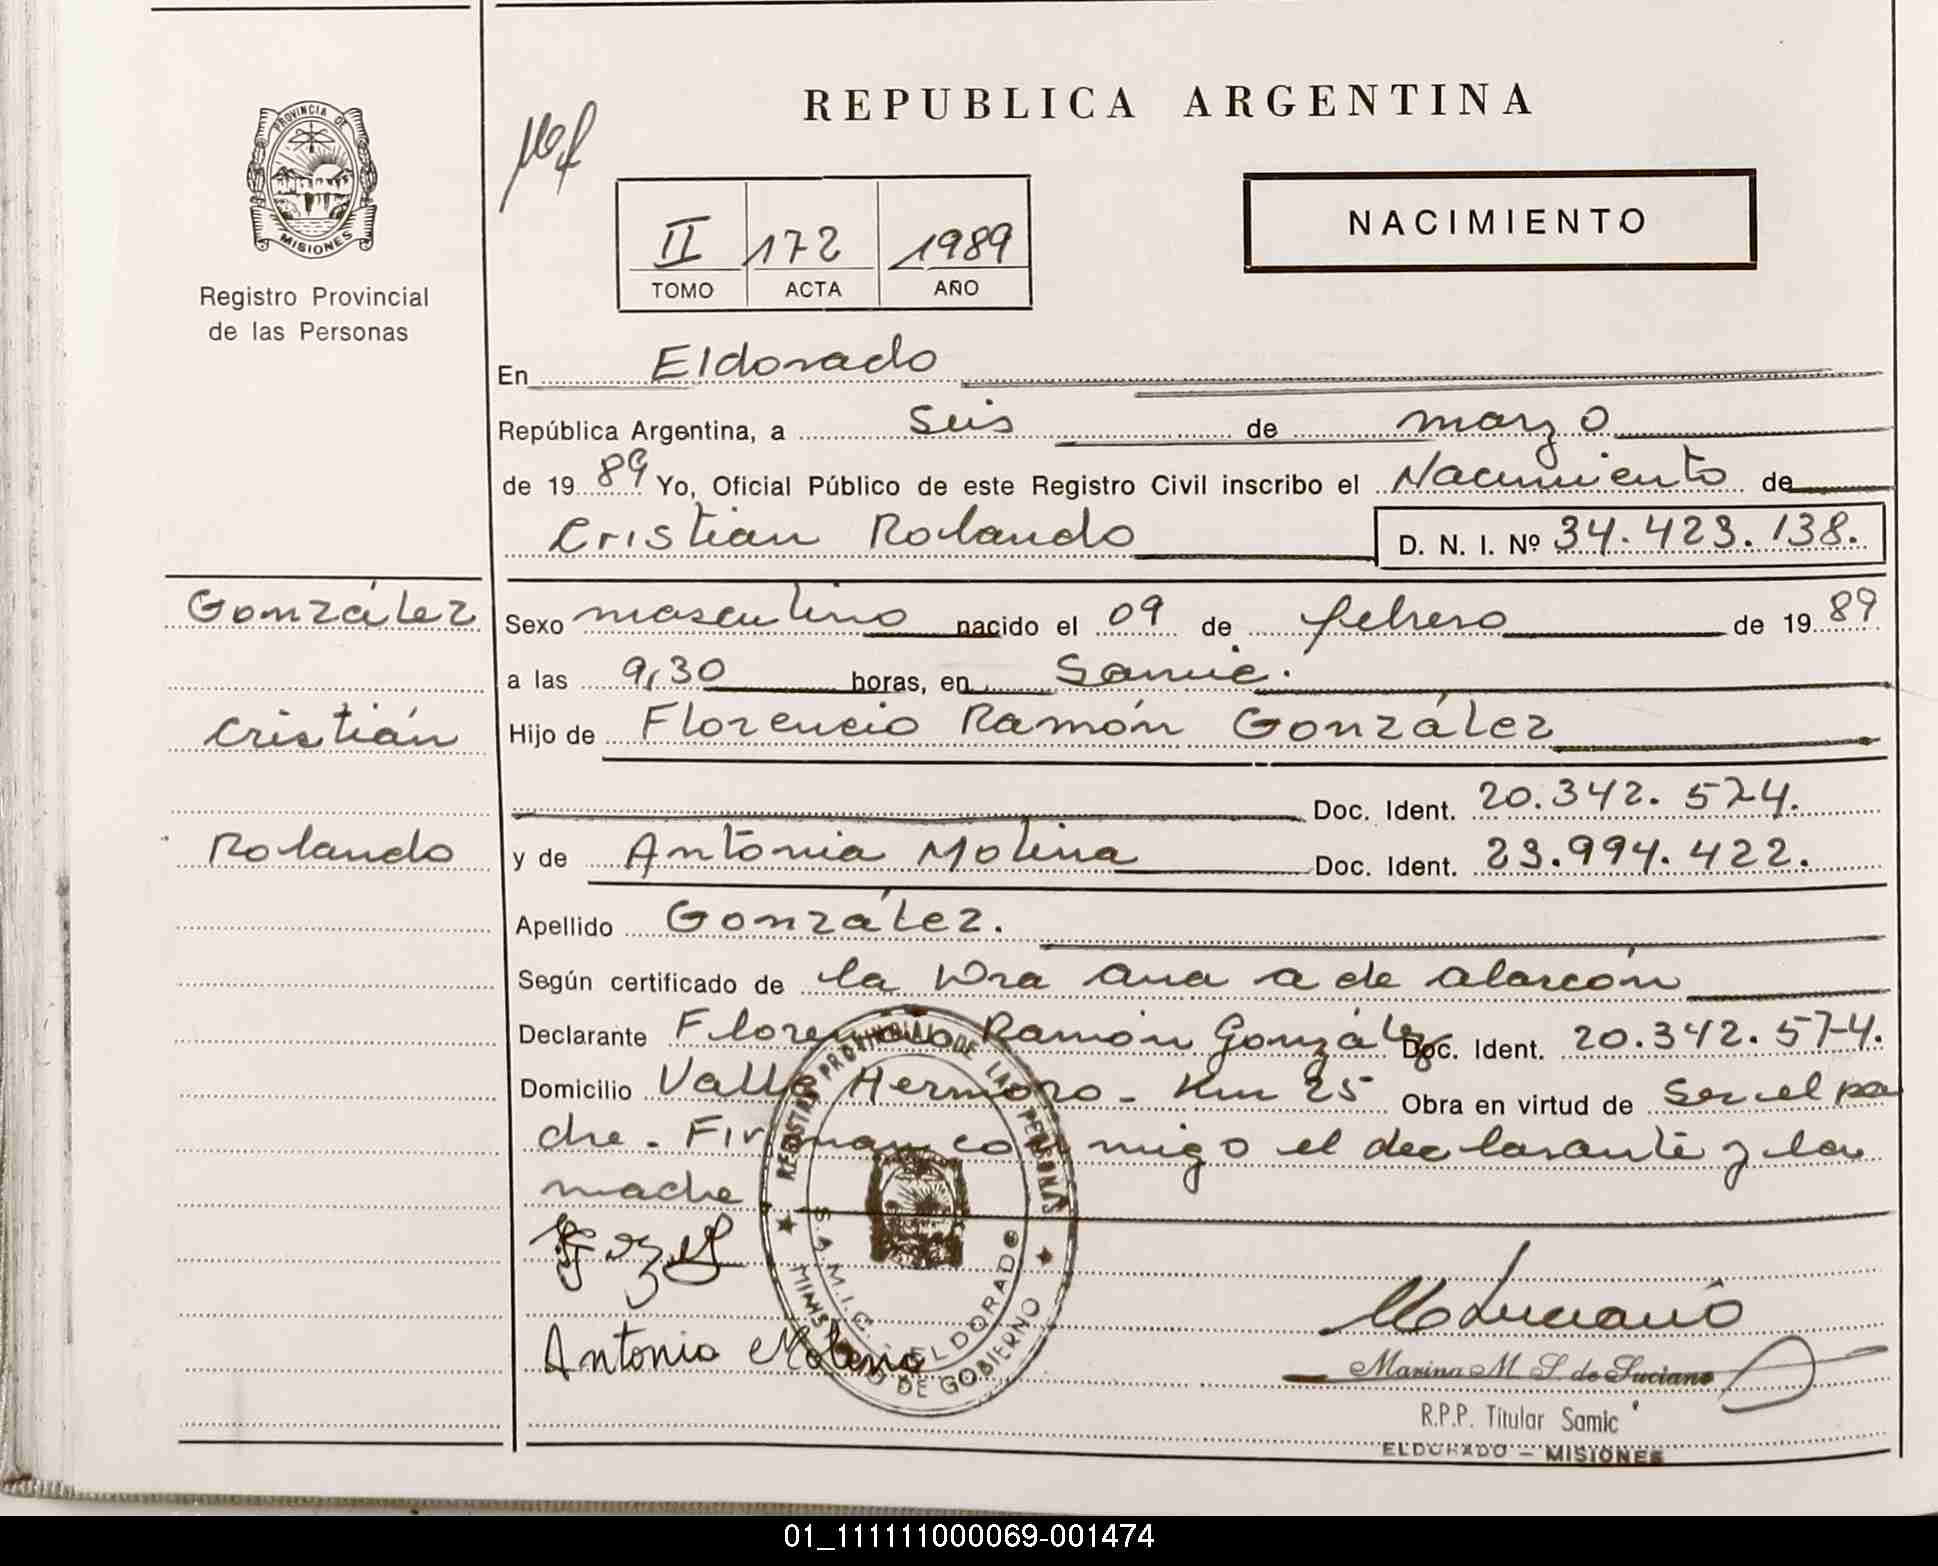 REPUBLICA ARGENTINA
PROVINCIA DE
MISIONES
Registro Provincial
de las Personas
II 172 1989
TOMO ACTA AÑO
NACIMIENTO
En Eldorado
República Argentina, a seis de marzo
de 1989 Yo, Oficial Público de este Registro Civil inscribo el Nacimiento de
Cristian Rolando D. N. I. Nº 34.423.138.
González
Cristián
Rolando
Sexo masculino nacido el 09 de febrero de 1989
a las 9,30 horas, en Samic.
Hijo de Florencio Ramón González
Doc. Ident. 20.342.574.
y de Antonia Molina Doc. Ident. 23.994.422.
Apellido González.
Según certificado de la Dra Ana A de Alarcón
Declarante Florencio Ramón González Doc. Ident. 20.342.574.
Domicilio Valle Hermoso - Km 25 Obra en virtud de ser el pa
dre. Firman conmigo el declarante y la
madre
REGISTRO PROVINCIAL DE LAS PERSONAS
S.A.M.I.C. ELDORADO
MINISTERIO DE GOBIERNO
Antonia Molina
M Luciano
Marina M. S. de Luciano
R.P.P. Titular Samic
ELDORADO - MISIONES
01_111111000069-001474